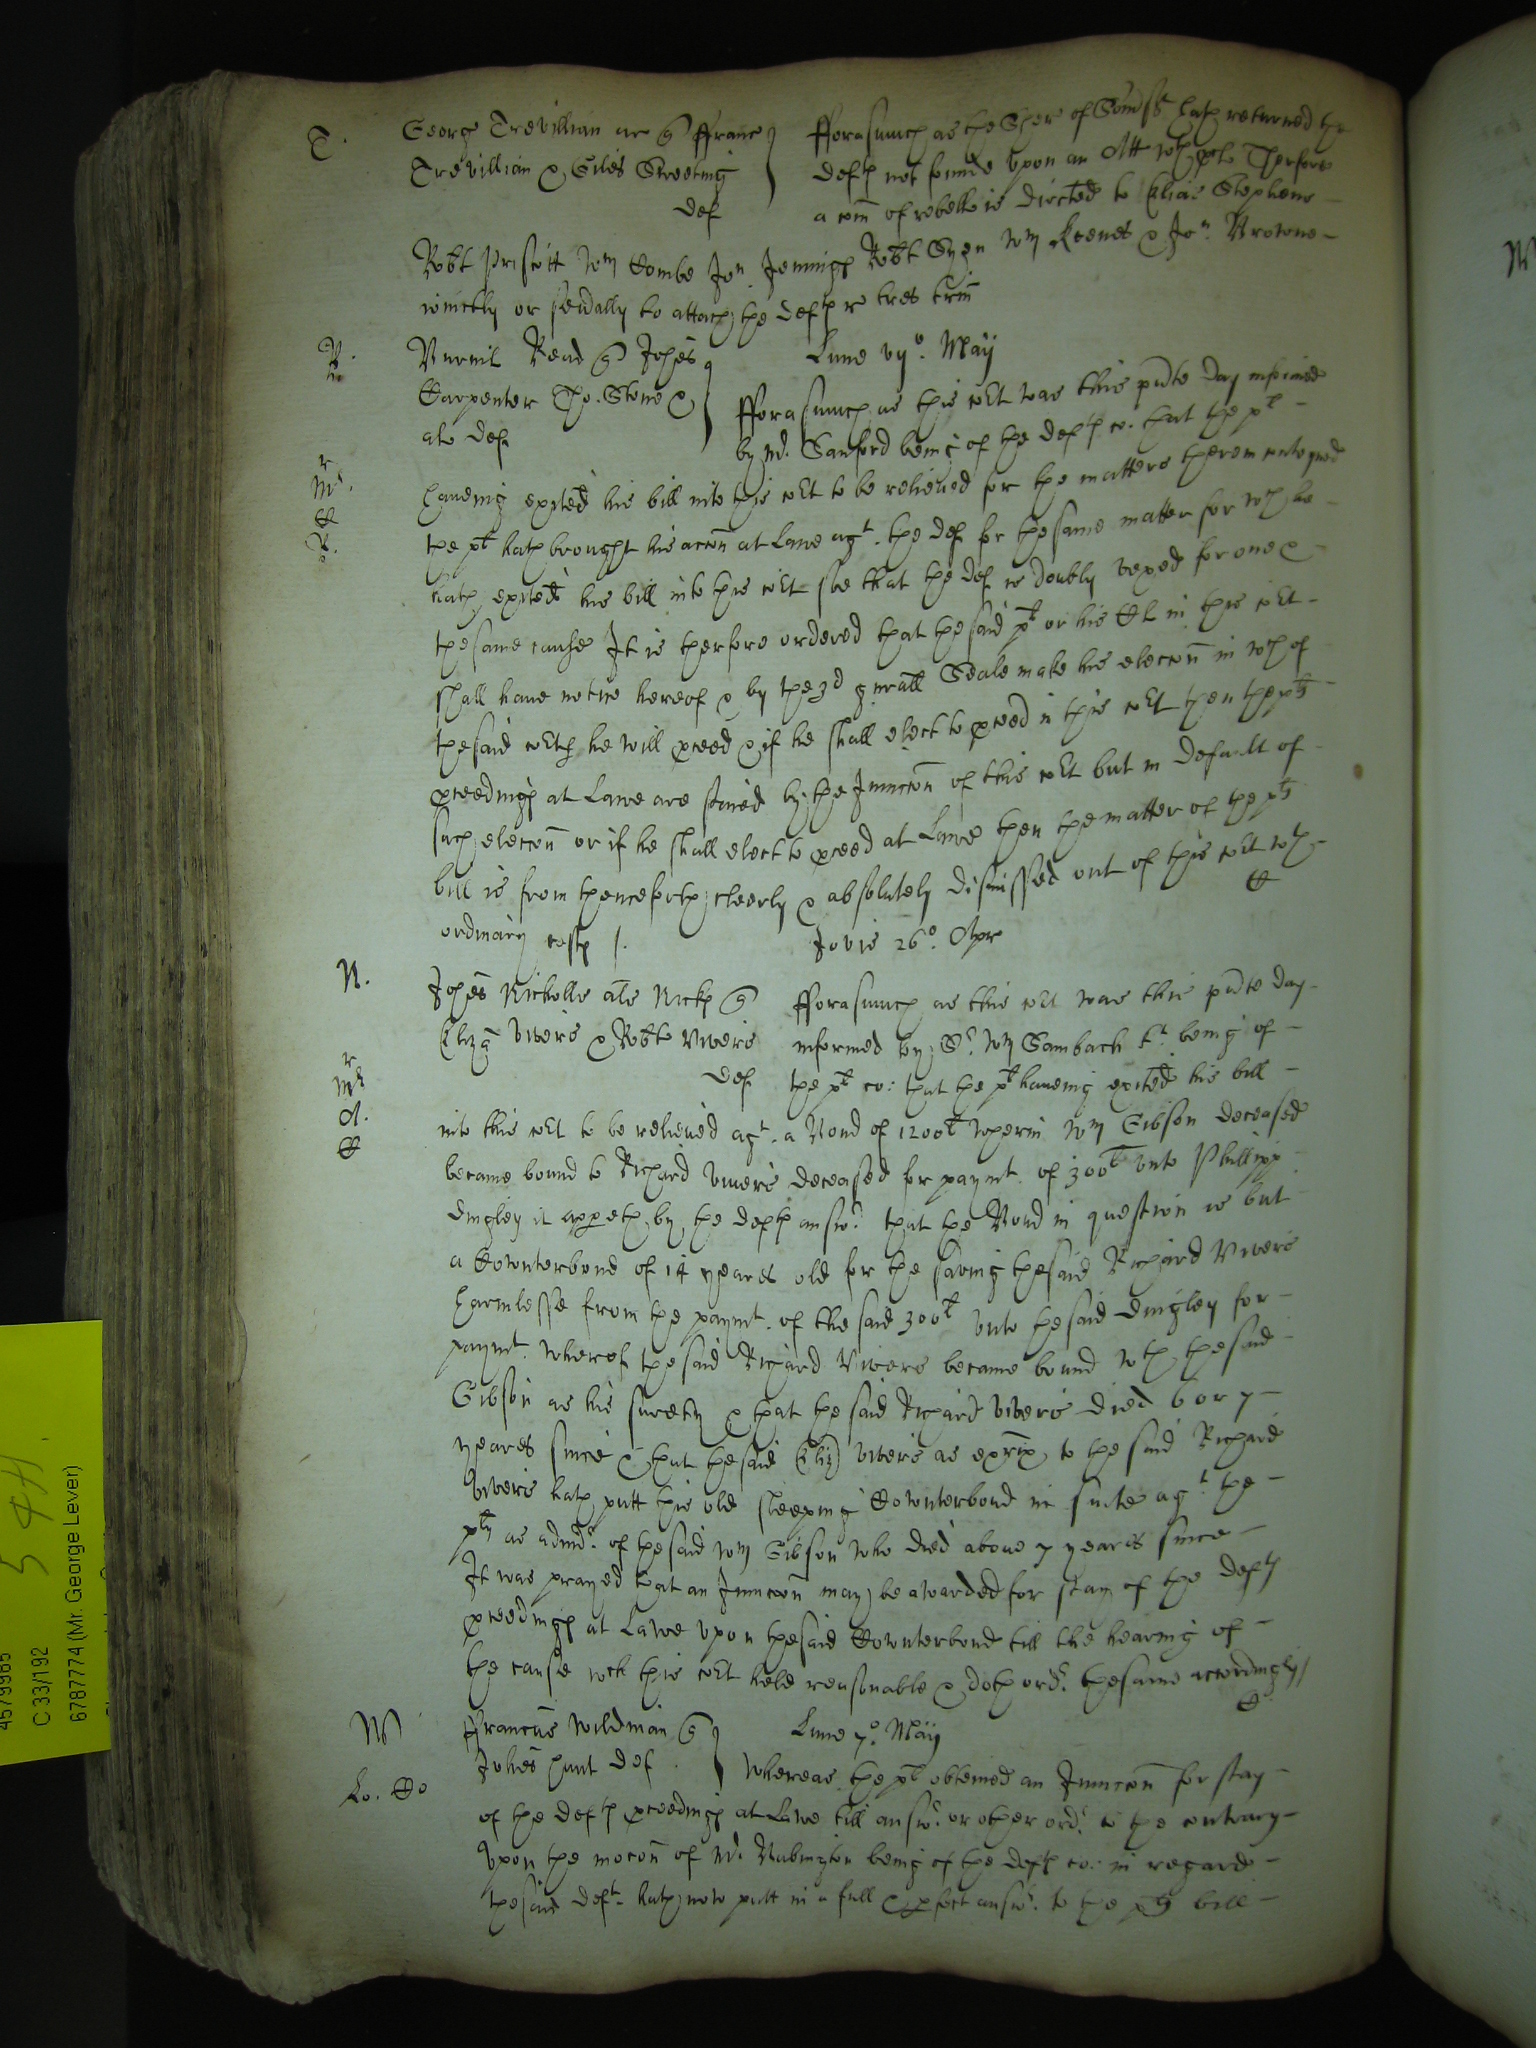 T.
George Trevillian ar q ffranc
Trevillian & Giles Streeting
def
fforasmuch as the Sher of Somst hath returned the
deft not founde vpon an Att wth procl Therfore
a com of rebell is directed to Elias Stephens
Robt Priscott Wm Combe Jon Jennings Robt Sygn Wm Keenes & Jon Browne
ioinctly or seually to attach the deft re tres trm
R.
Read q Johes
Carpenter Tho. Stone &
als def
Lune vijo May
fforasmuch as this cot was this pnte day informed
by Mr. Sanford being of the deft co. that the pl
haueing exited his bill into this cot to be relieued for the matters therein
the pl hath brought his accon at Lawe agt. the def for the same matter for wch he
hath exited his bill into this cot soe that the def is doubly vexed for one &
the same cause It is therfore ordered that the said pl or his Cl in this cot
shall haue notice hereof & by the 3d gnrall Seale make his eleccon in wch of
the said cots he will pceed & if he shall elect to pceed in this cot then the pls
pceedings at Lawe are staied by the Iniunccon of this cot but in default of
such eleccon or if he shall elect to pceed at Lawe then the matter of the pls
bill is from thenceforth cleerly & absolutely dismissed out of this cot wth
ordinary costs /.
Mr.
N.
Jovis 26o. Apr
Johes Nickolls als Nicks q
Eliza Vivers & Robt Vivers
def
fforasmuch as this cot was this pnte day
informed by Sr. Wm Sambach kt. being of
the pl co: that the pl haueing exited his bill
into this cot to be relieued agt. a Bond of 1200l wherin Wm Gibson deceased
became bound to Richard Vivers deceased for paymt. of 300l vnto Phillipp
Dingley it appeth by the defts answr. that the Bond in question is but
a Counterbond of 14 yeares old for the saving the said Richard Vivers
harmlesse from the paymt. of the said 300l vnto the said Dingley for
paymt. wherof the said Richard Vivers became bound wth the said
Gibson as his surety & that the said Richard Vivers died 6 or 7
yeares since & that the said Eliz Vivers as exrix to the said Richard
Vivers hath putt this old sleeping Counterbond in suite agt. the
pl as admr. of the said Wm Gibson who died aboue 7 yeares since
It was prayed that an Iniunccon may be awarded for stay of the defts
pceedings at Lawe vpon the said Counterbond till the hearing of
the cause wch this cot held reasonable & doth ordr. the same accordingly /
Mr
A.
W
Lo. Co
ffrancus Wildman q
Johes Hunt def.
Lune 7o. May
Whereas the pl obteined an Iniunccon for stay
of the defts pceedings at Lawe till answr. or other ordr. to the contrary
Vpon the mocon of Mr. Babington being of the defts co: in regard
the said deft. hath now putt in a full & pfect answr. to the pls bill
5 441.
4579985
C 33/192
6787774 (Mr. George Lever)